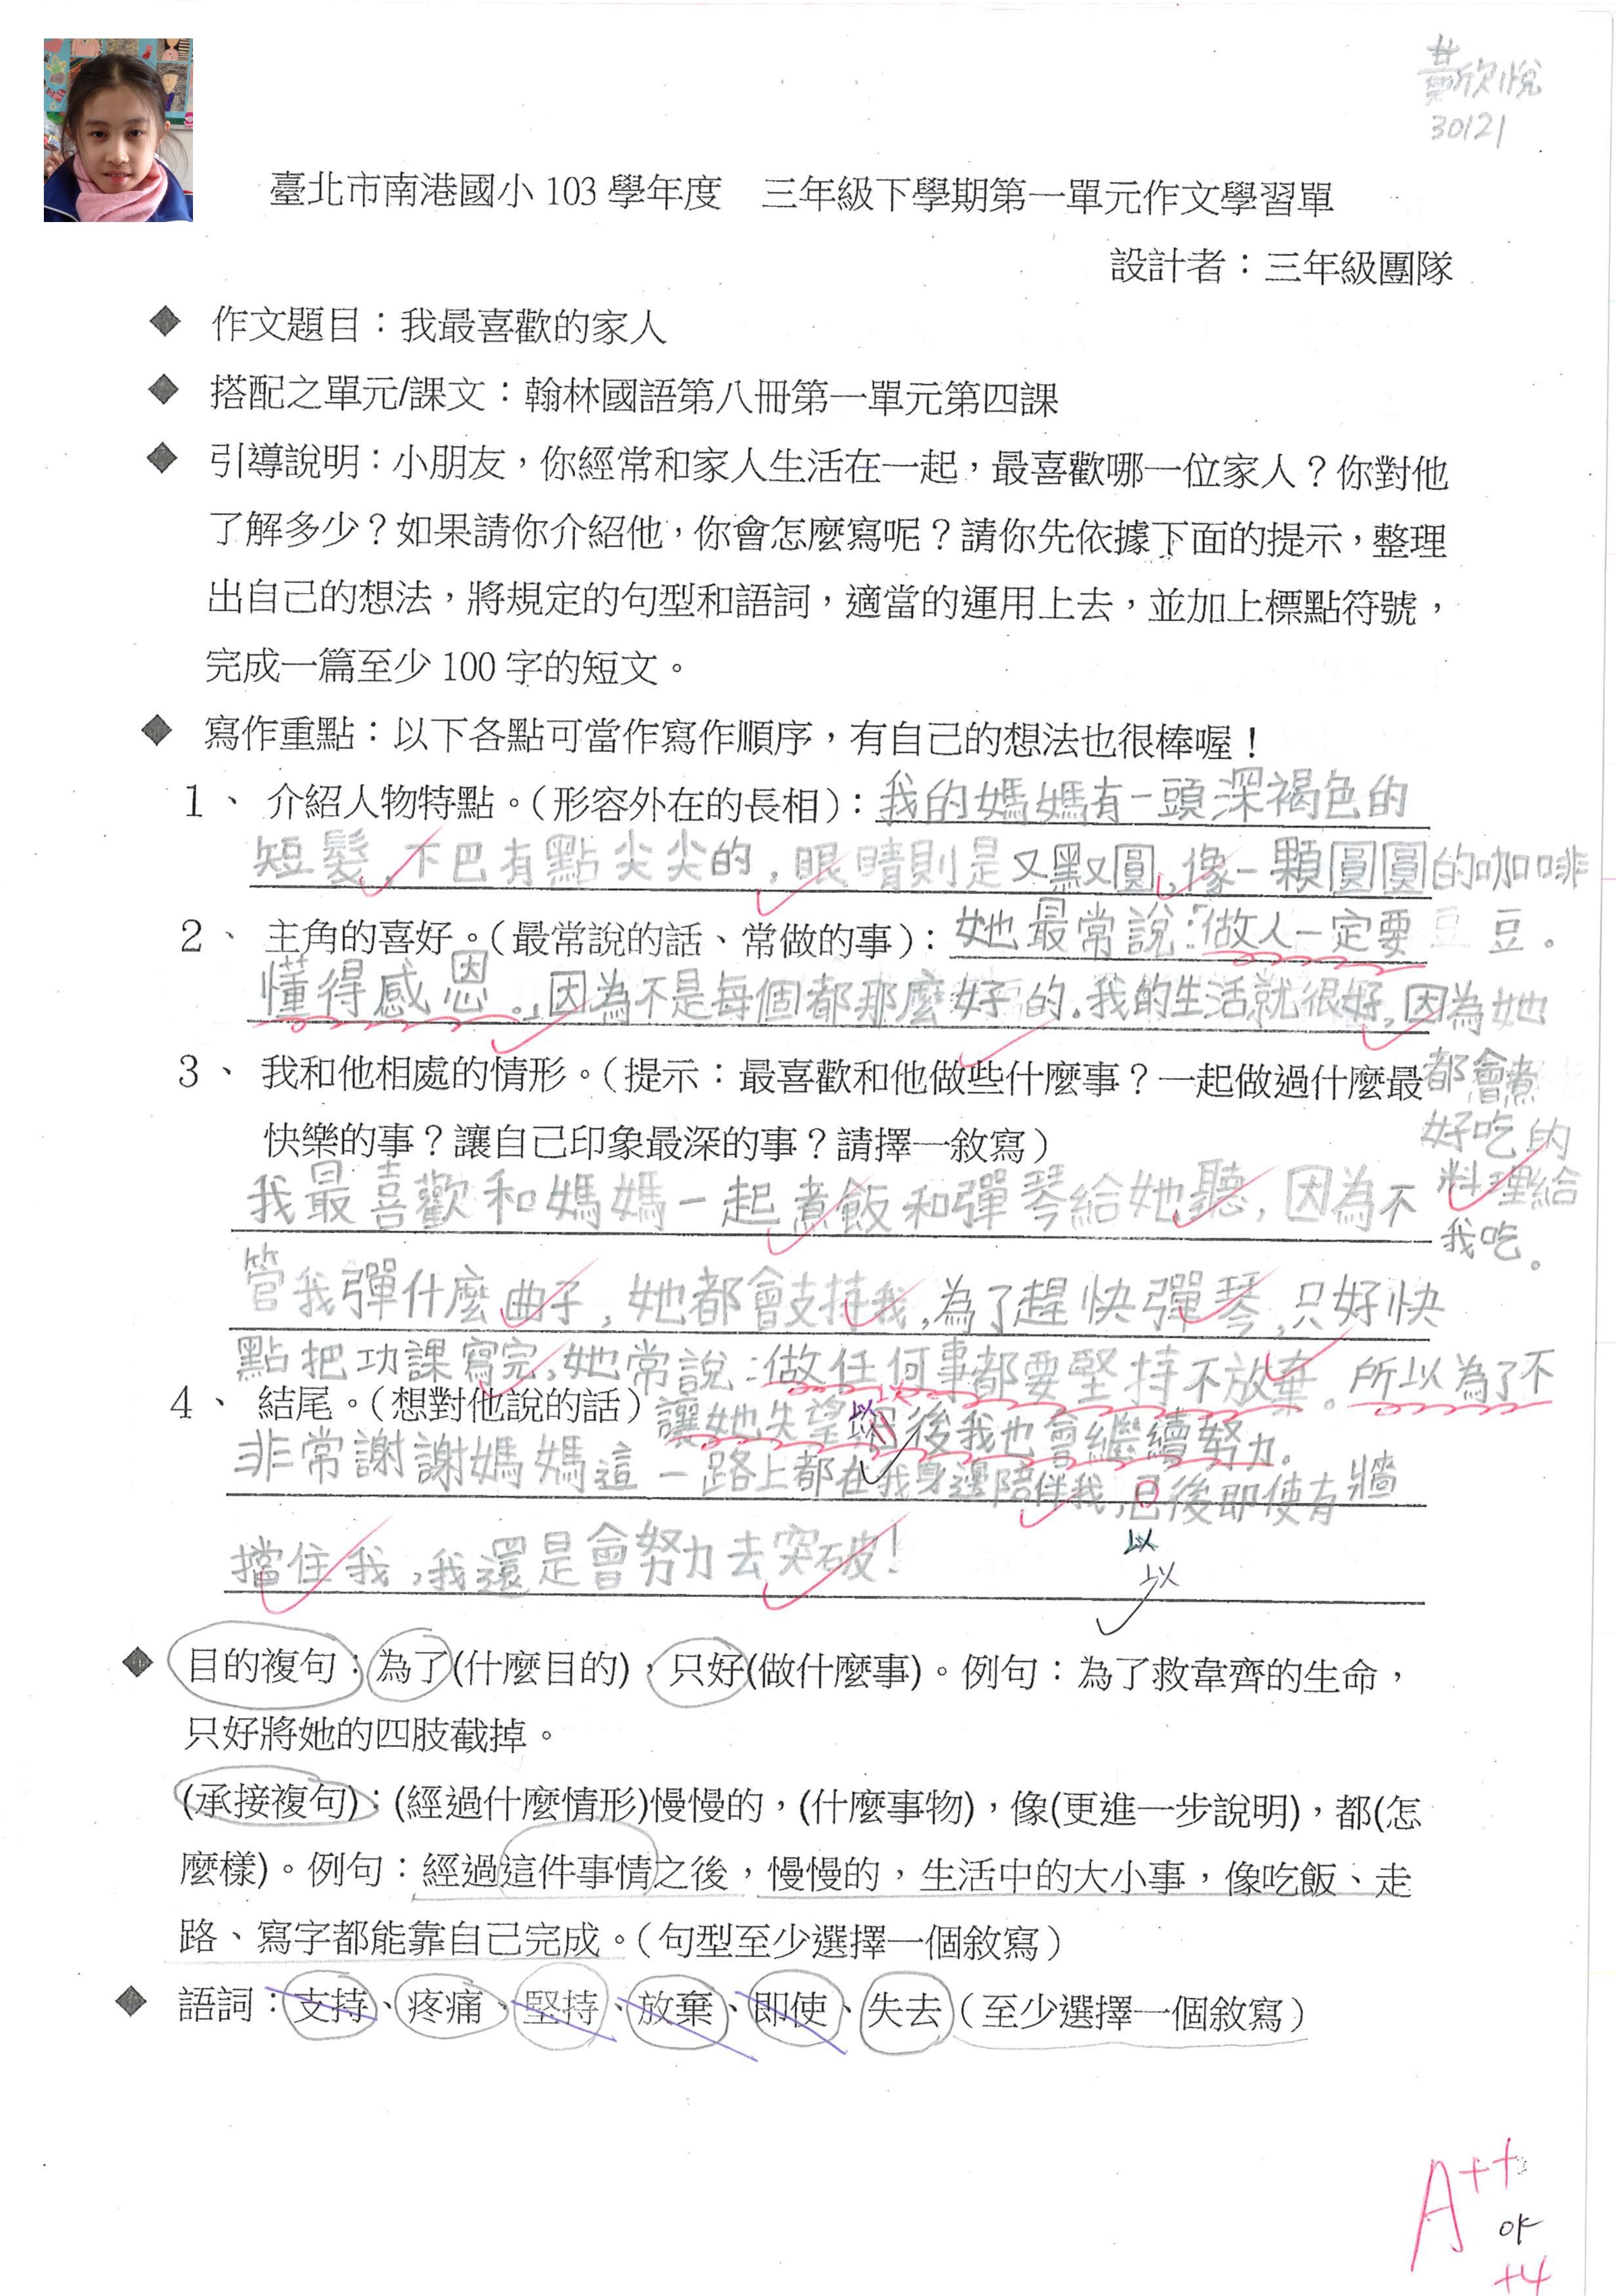 黃欣悅
30121
臺北市南港國小 103 學年度　三年級下學期第一單元作文學習單
設計者：三年級團隊
◆ 作文題目：我最喜歡的家人
◆ 搭配之單元/課文：翰林國語第八冊第一單元第四課
◆ 引導說明：小朋友，你經常和家人生活在一起，最喜歡哪一位家人？你對他
了解多少？如果請你介紹他，你會怎麼寫呢？請你先依據下面的提示，整理
出自己的想法，將規定的句型和語詞，適當的運用上去，並加上標點符號，
完成一篇至少 100 字的短文。
◆ 寫作重點：以下各點可當作寫作順序，有自己的想法也很棒喔！
1、 介紹人物特點。（形容外在的長相）：我的媽媽有一頭深褐色的
短髮，下巴有點尖尖的，眼睛則是又黑又圓，像一顆圓圓的咖啡
豆。
2、 主角的喜好。（最常說的話、常做的事）：她最常說：「做人一定要
懂得感恩。」因為不是每個都那麼好的。我的生活就很好，因為她
都會煮
好吃的
料理給
我吃。
3、 我和他相處的情形。（提示：最喜歡和他做些什麼事？一起做過什麼最
快樂的事？讓自己印象最深的事？請擇一敘寫）
我最喜歡和媽媽一起煮飯和彈琴給她聽，因為不
管我彈什麼曲子，她都會支持我，為了趕快彈琴，只好快
點把功課寫完，她常說：做任何事都要堅持不放棄。所以為了不
讓她失望，以後我也會繼續努力。
4、 結尾。（想對他說的話）
非常謝謝媽媽這一路上都在我身邊陪伴我，已後即使有牆
以
以
擋住我，我還是會努力去突破！
◆ 目的複句：為了(什麼目的)，只好(做什麼事)。例句：為了救韋齊的生命，
只好將她的四肢截掉。
(承接複句)：(經過什麼情形)慢慢的，(什麼事物)，像(更進一步說明)，都(怎
麼樣)。例句：經過這件事情之後，慢慢的，生活中的大小事，像吃飯、走
路、寫字都能靠自己完成。（句型至少選擇一個敘寫）
◆ 語詞：支持、疼痛、堅持、放棄、即使、失去（至少選擇一個敘寫）
A++
ok
+4